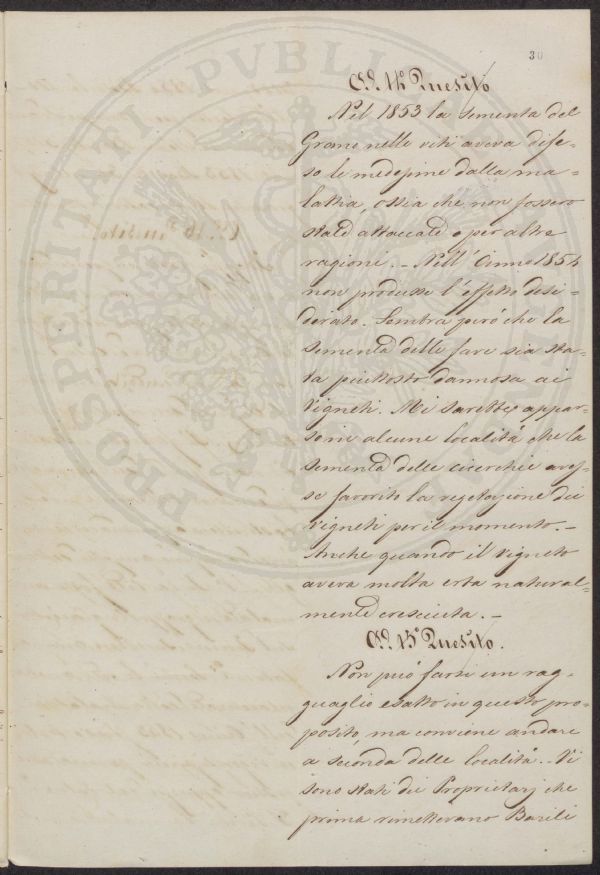 30
Al 14° Quesito
Nel 1853 la sementa del
Grano nelle viti aveva dife=
so le medesime dalla ma=
lattia, ossia che non fossero
state attaccate per altre
ragioni. - Nell'Anno 1854
non produsse l'effetto desi=
derato. Sembra però che la
sementa delle fave sia sta=
ta piuttosto dannosa ai
Vigneti. Mi sarebbe appar=
so in alcune località che la
sementa delle cicerchie aves=
se favorito la vegetazione dei
Vigneti per il momento. -
Anche quando il Vigneto
aveva molta erba natural=
mente cresciuta. -
Al 15° Quesito.
Non può farsi un rag=
guaglio esatto in questo pro=
posito, ma conviene andare
a seconda delle località. - Vi
sono stati dei Proprietarj che
prima rimettevano Barili
PROSPERITATI PVBLICAE